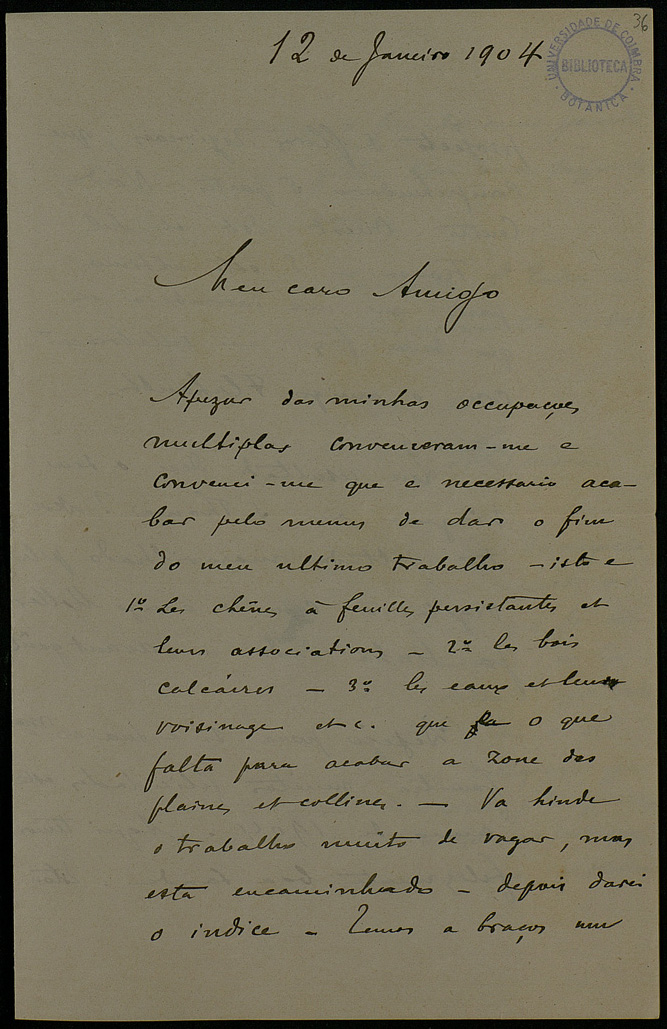 36
UNIVERSIDADE DE COIMBRA
BIBLIOTECA
BOTANICA
12 de Janeiro 1904
Meu caro Amigo
Apezar das minhas occupações
multiplas convenceram-me e
convenci-me que e necessario aca-
bar pelo menus de dar o fim
do meu ultimo trabalho - isto e
1º Les chênes à feuilles persistantes et
leurs associations - 2º les bois
calcáires - 3º les eaux et leur
voisinage etc. que o que
falta para acabar a zone des
plaines et collines. - Va hindo
o trabalho muito de vagar, mas
esta encaminhado - depois darei
o indice - Temos a braços um